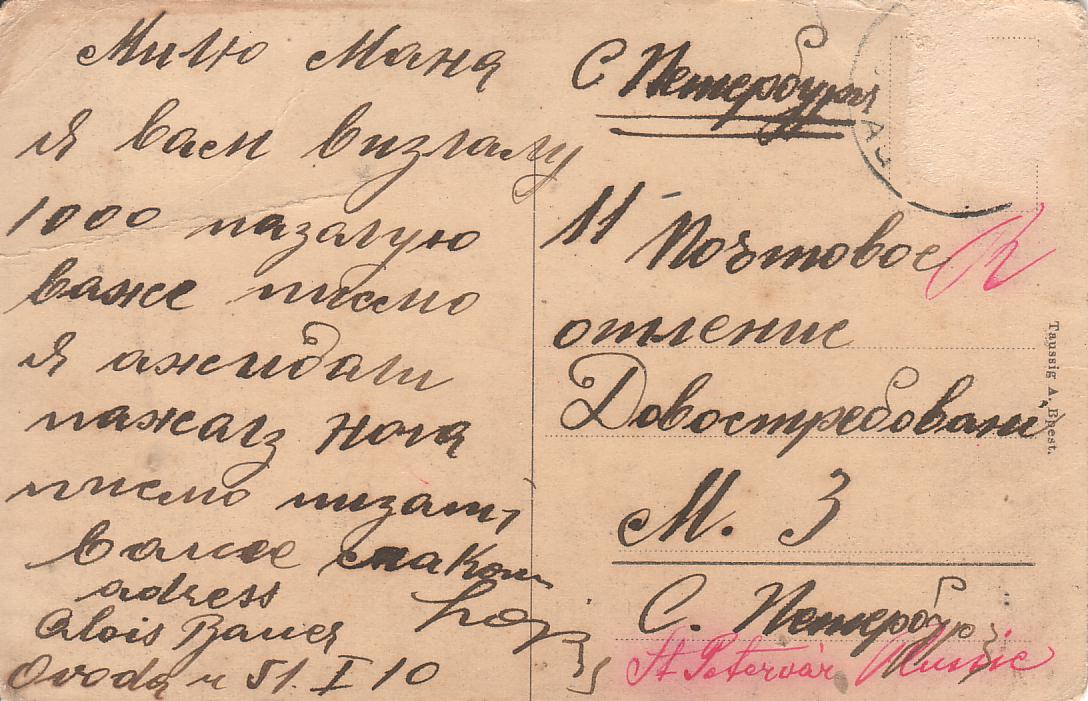 Милю Маня
я вам визлалу
1000 пазалую
важе писмо
я ажидали
пажалз нога
писмо пизат,
ваше снаком
adress
Alois Bauer
Ovoda u 51. I 10
С Петербург
11 Почтовое
отление
Довостребовани
М. З
С. Петербур
St Petervár Russie
Taussig A. Bpest.